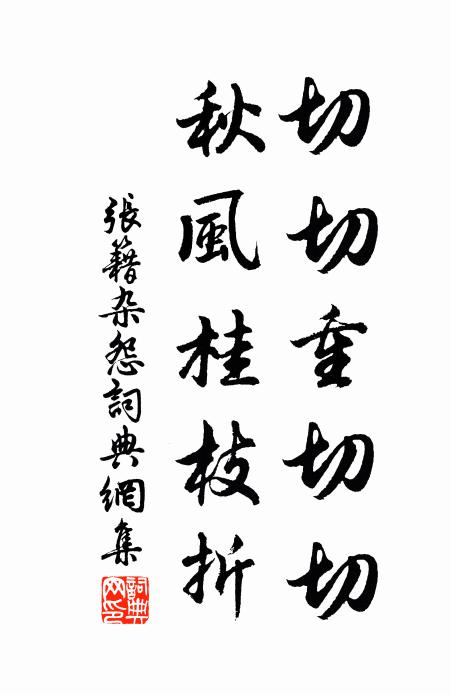 切切重切切
秋風桂枝折
張籍杂怨詞典網集
詞典網印